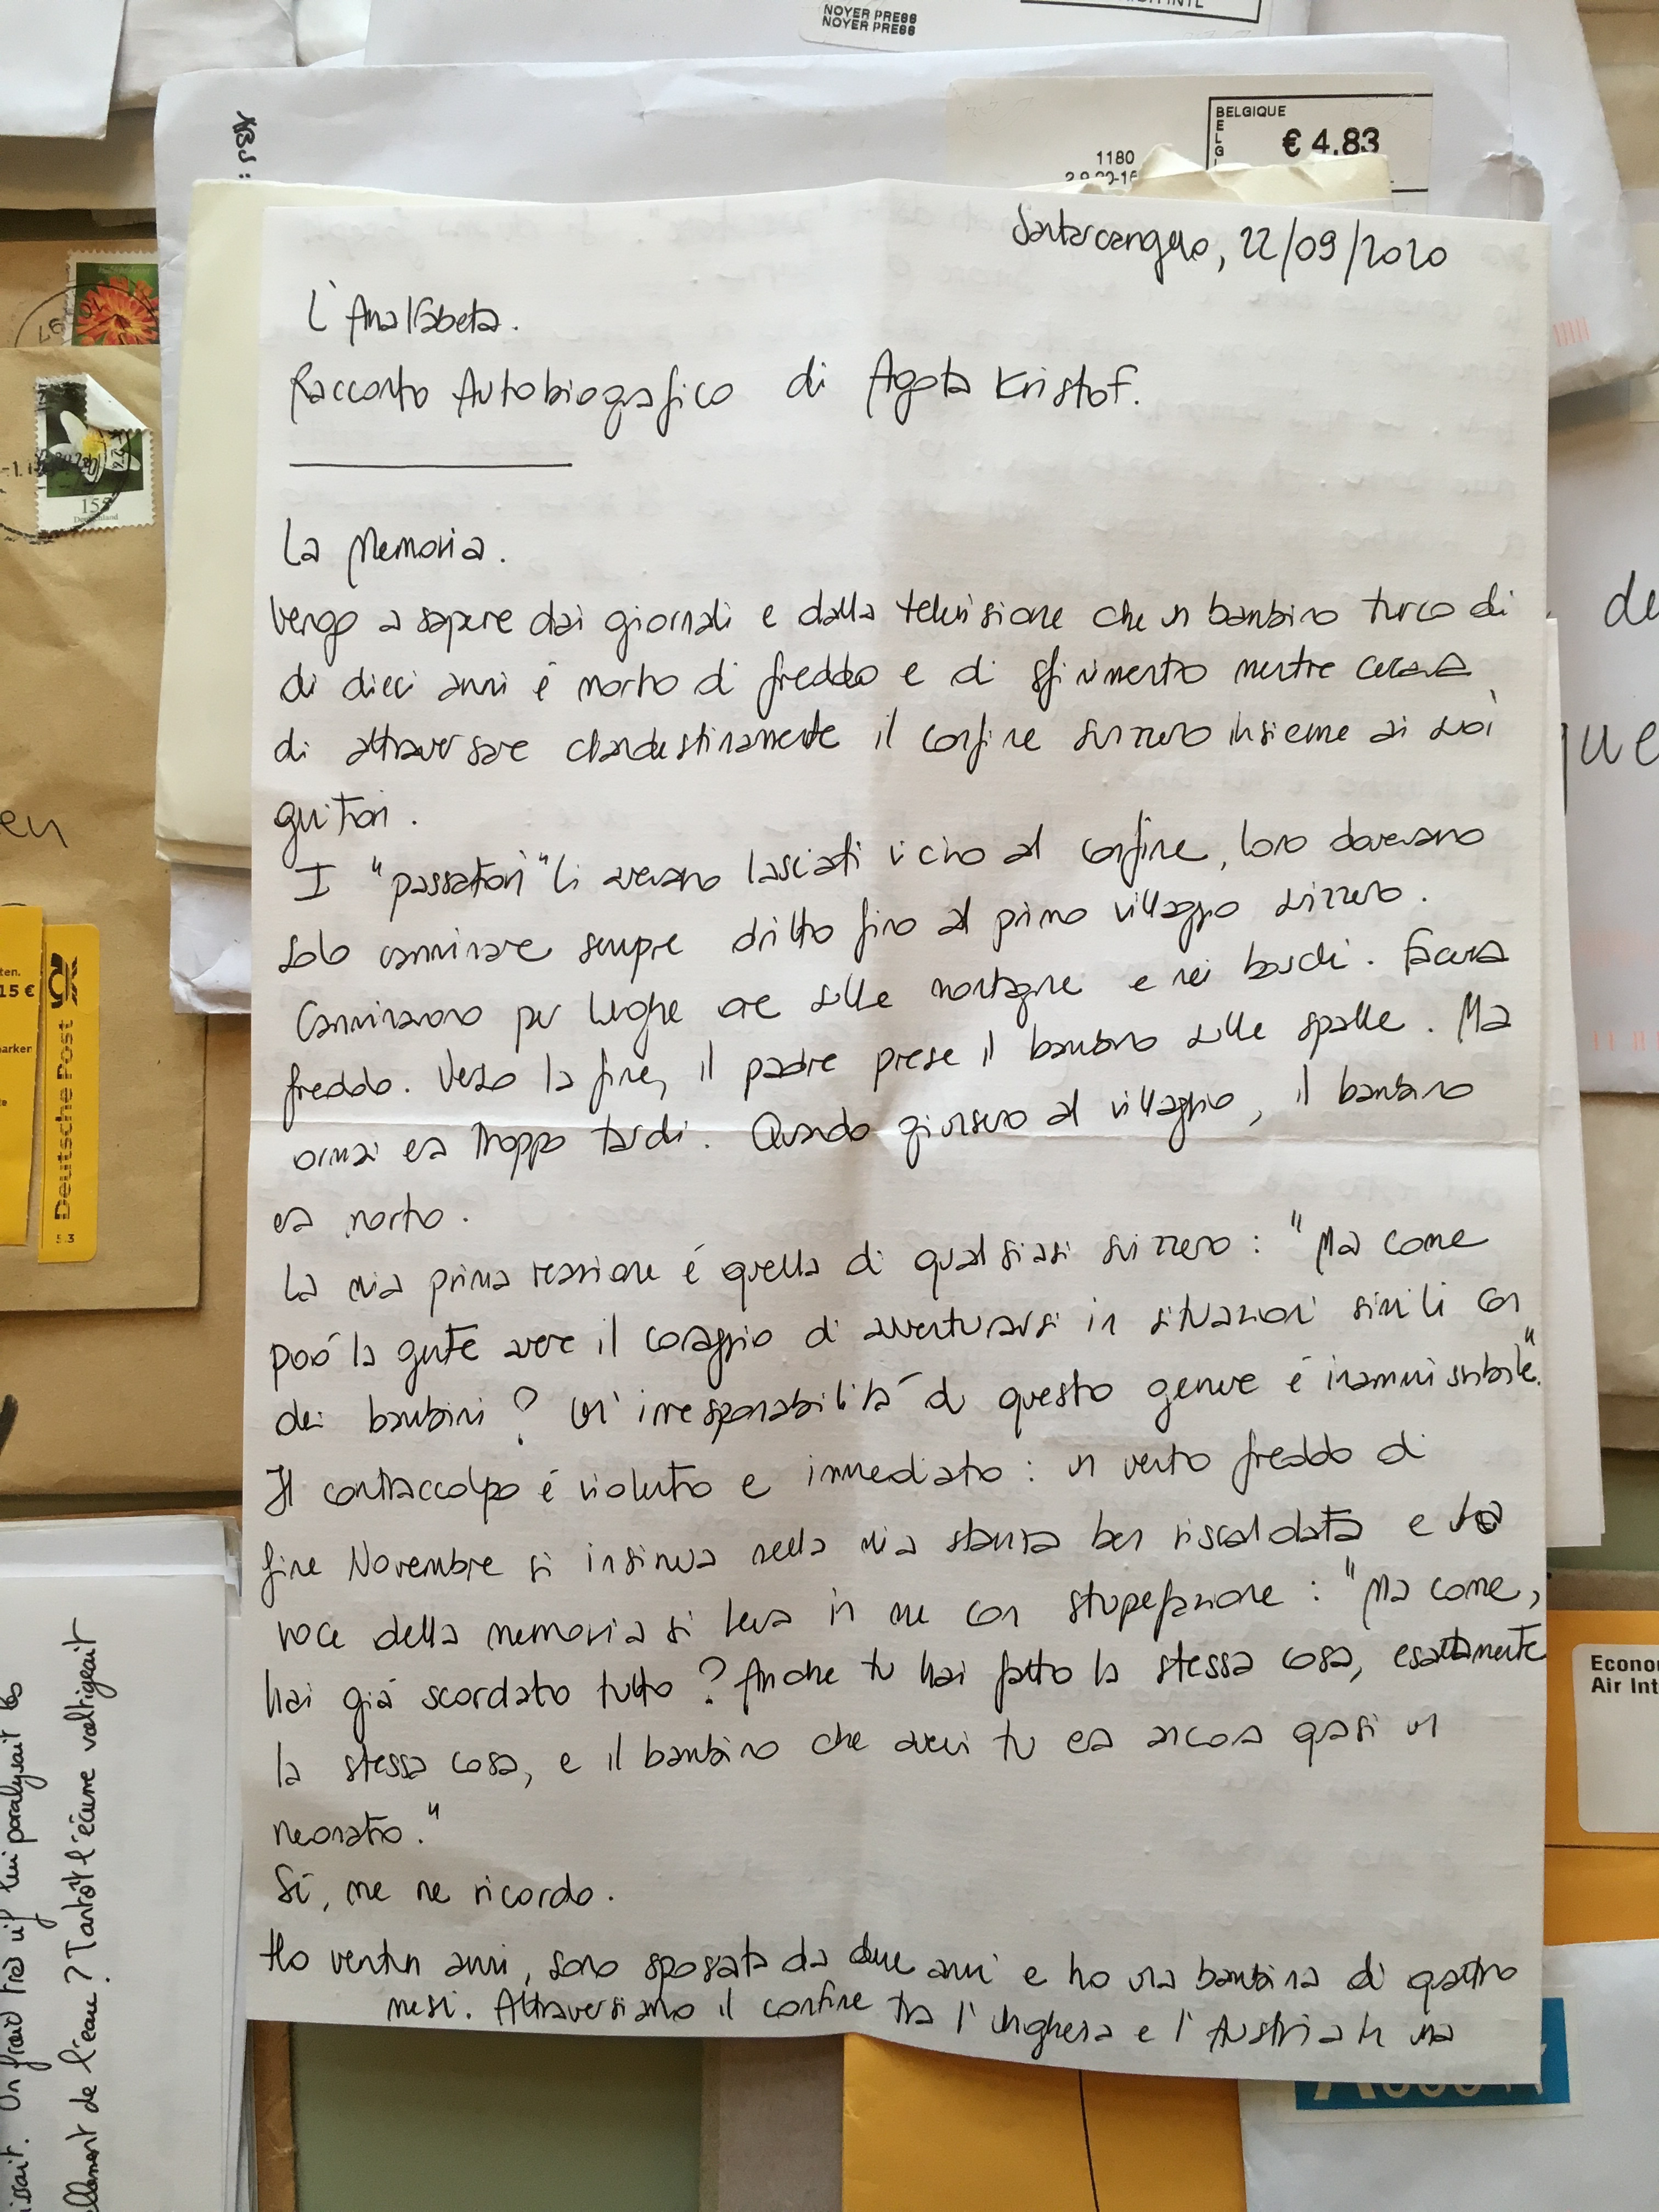 NOYER PRESS
NOYER PRESS
BELGIQUE
€ 4.83
1180
Santarcangelo, 22/09/2020
L'Analfabeta.
Racconto Autobiografico di Agota Kristof.
La Memoria.
Vengo a sapere dai giornali e dalla televisione che un bambino turco di
di dieci anni é morto di freddo e di sfinimento mentre cercava
di attraversare clandestinamente il confine svizzero insieme ai suoi
genitori.
I "passatori" li avevano lasciati vicino al confine, loro dovevano
solo camminare sempre dritto fino al primo villaggio svizzero.
Camminarono per lunghe ore sulle montagne e nei boschi. Faceva
freddo. Verso la fine, il padre prese il bambino sulle spalle. Ma
ormai era troppo tardi. Quando giunsero al villaggio, il bambino
era morto.
La mia prima reazione é quella di qualsiasi svizzero: "Ma come
puó la gente avere il coraggio di avventurarsi in situazioni simili con
dei bambini? Un'irresponsabilitá di questo genere é inammissibile".
Il contraccolpo é violento e immediato: un vento freddo di
fine Novembre si insinua nella mia stanza ben riscaldata e la
voce della memoria si leva in me con stupefazione: "Ma come,
hai giá scordato tutto? Anche tu hai fatto la stessa cosa, esattamente
la stessa cosa, e il bambino che avevi tu era ancora quasi un
neonato."
Sí, me ne ricordo.
Ho ventun anni, sono sposata da due anni e ho una bambina di quattro
mesi. Attraversiamo il confine tra l'Ungheria e l'Austria in una
de
que
en
155
Deutschland
15 €
Deutsche Post
5.3
Econo
Air Int
issait. Un froid très vif lui paralysait les
ellement de l'eau? Tantôt l'écume voltigeait